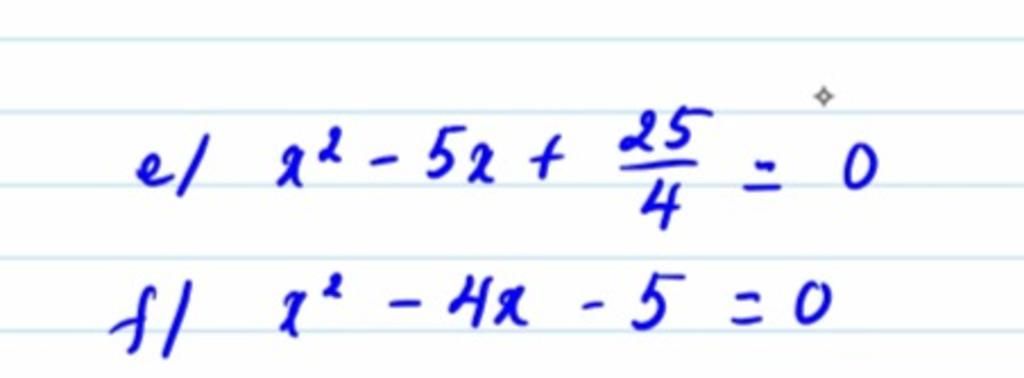 e/ x² - 5x + 25/4 = 0
f/ x² - 4x - 5 = 0